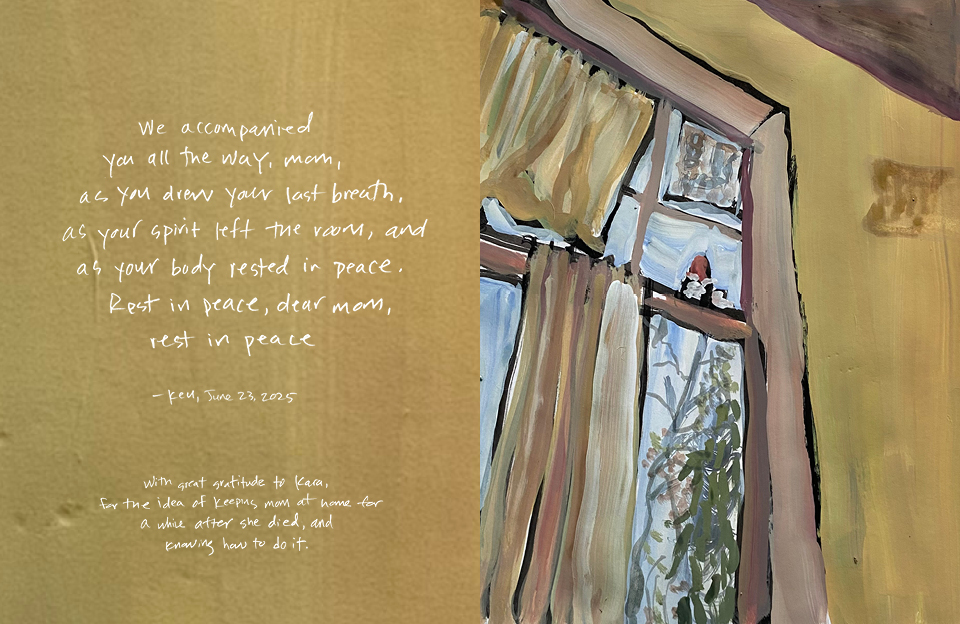 We accompanied
you all the way, mom,
as you drew your last breath,
as your spirit left the room, and
as your body rested in peace.
Rest in peace, dear mom,
rest in peace
– Ken, June 23, 2025
With great gratitude to Kara,
for the idea of keeping mom at home for
a while after she died, and
knowing how to do it.